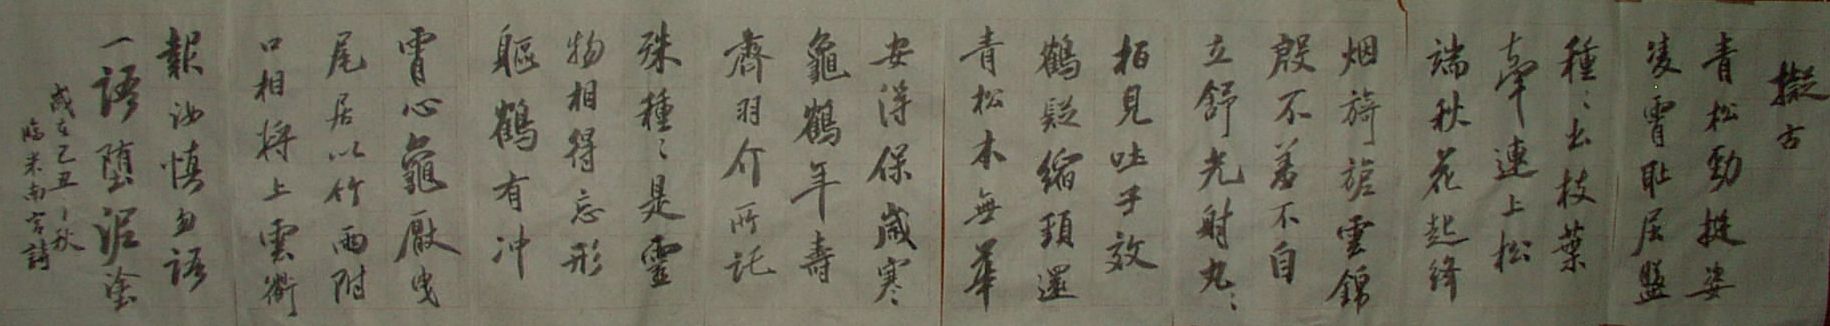 擬古
青松勁挺姿
凌霄耻屈盤
種〻出枝葉
牽連上松
端秋花起絳
烟旖旎雲錦
殷不羞不自
立舒光射丸〻
柏見吐子效
鶴疑縮頚還
青松本無華
安得保歲寒
龜鶴年壽
齊羽介所託
殊種〻是靈
物相得忘形
軀鶴有冲
霄心龜厭曳
尾居以竹兩附
口相將上雲衢
報汝慎勿語
一語墮泥塗
歲在己丑〻秋
臨米南宮詩